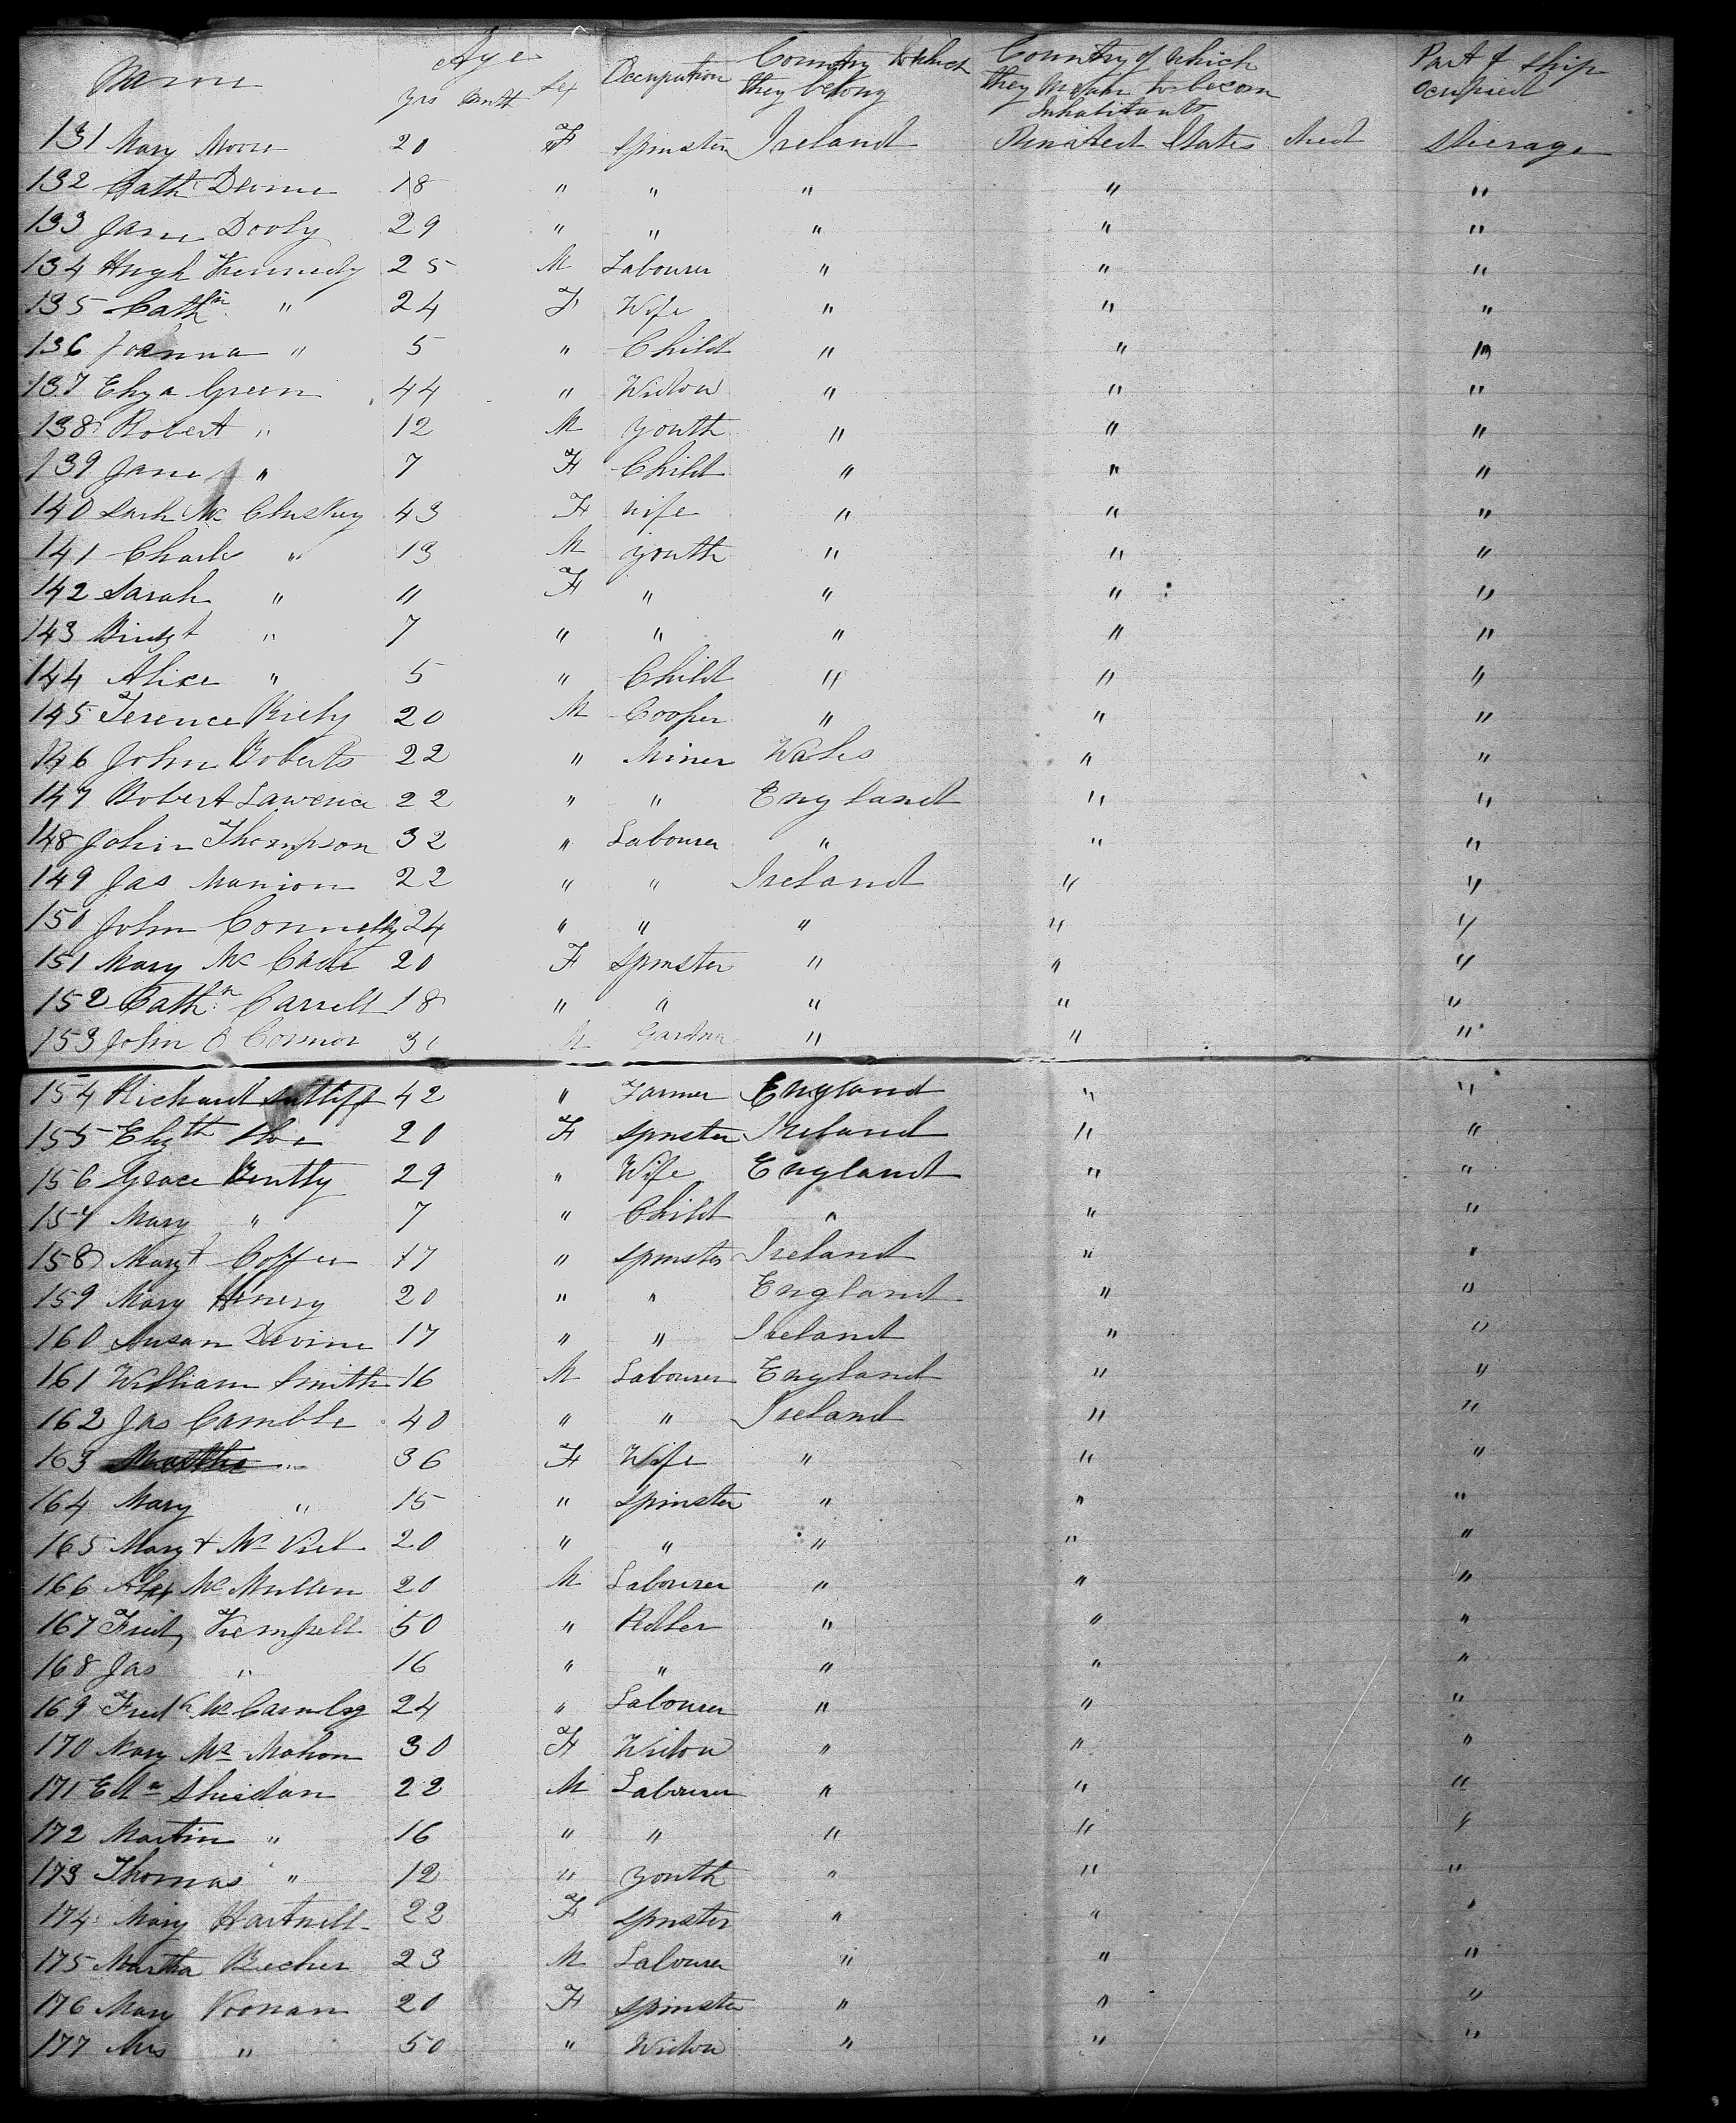 Name Age yrs Mnth Sex Occupation Country to which they belong Country of which they mean to becom Inhabitants Part of Ship Ocupied
131 Mary Moore 20 F Spinster Ireland United States Steerage
132 Cath Devine 18 " " " " "
133 Jane Dooly 29 " " " " "
134 Hugh Kennedy 25 M Labourer " " "
135 Cathn " 24 F Wife " " "
136 Joanna " 5 " Child " " "
137 Eliza Green 44 " Widow " " "
138 Robert " 12 M Youth " " "
139 Jane " 7 F Child " " "
140 Sarh Mc Cluskey 43 F Wife " " "
141 Charls " 13 M Youth " " "
142 Sarah " 11 F " " " "
143 Bridgt " 7 " " " " "
144 Alice " 5 " Child " " "
145 Terence Riely 20 M Cooper " " "
146 John Roberts 22 " Miner Wales " "
147 Robert Lawrence 22 " " England " "
148 John Thompson 32 " Labourer " " "
149 Jas Manion 22 " " Ireland " "
150 John Connelly 24 " " " " "
151 Mary Mc Cade 20 F Spinster " " "
152 Cathn Carrell 18 " " " " "
153 John O Connor 30 M Gardner " " "
154 Richard Sutliff 42 " Farmer England " "
155 Elizth 20 F Spnster Ireland " "
156 Grace Bently 29 " Wife England " "
157 Mary " 7 " Child " " "
158 Margt Coffee 17 " Spinster Ireland " "
159 Mary Henery 20 " " England " "
160 Susan Devine 17 " " Ireland " "
161 William Smith 16 M Labourer England " "
162 Jas Camble 40 " " Ireland " "
163 Martha " 36 F Wife " " "
164 Mary " 15 " Spinster " " "
165 Margt Mc 20 " " " " "
166 Alex Mc Mullen 20 M Labourer " " "
167 Fred Kempell 50 " " " "
168 Jas " 16 " " " " "
169 Fredk Mc 24 " Labourer " " "
170 Mary Mc Mahon 30 F Widow " " "
171 Edn Sheridan 22 M Labourer " " "
172 Martin " 16 " " " " "
173 Thomas " 12 " Youth " " "
174 Mary Hartnell 22 F Spnster " " "
175 Martha Becher 23 M Labourer " " "
176 Mary Noonan 20 F Spinster " " "
177 Mrs " 50 " Widow " " "